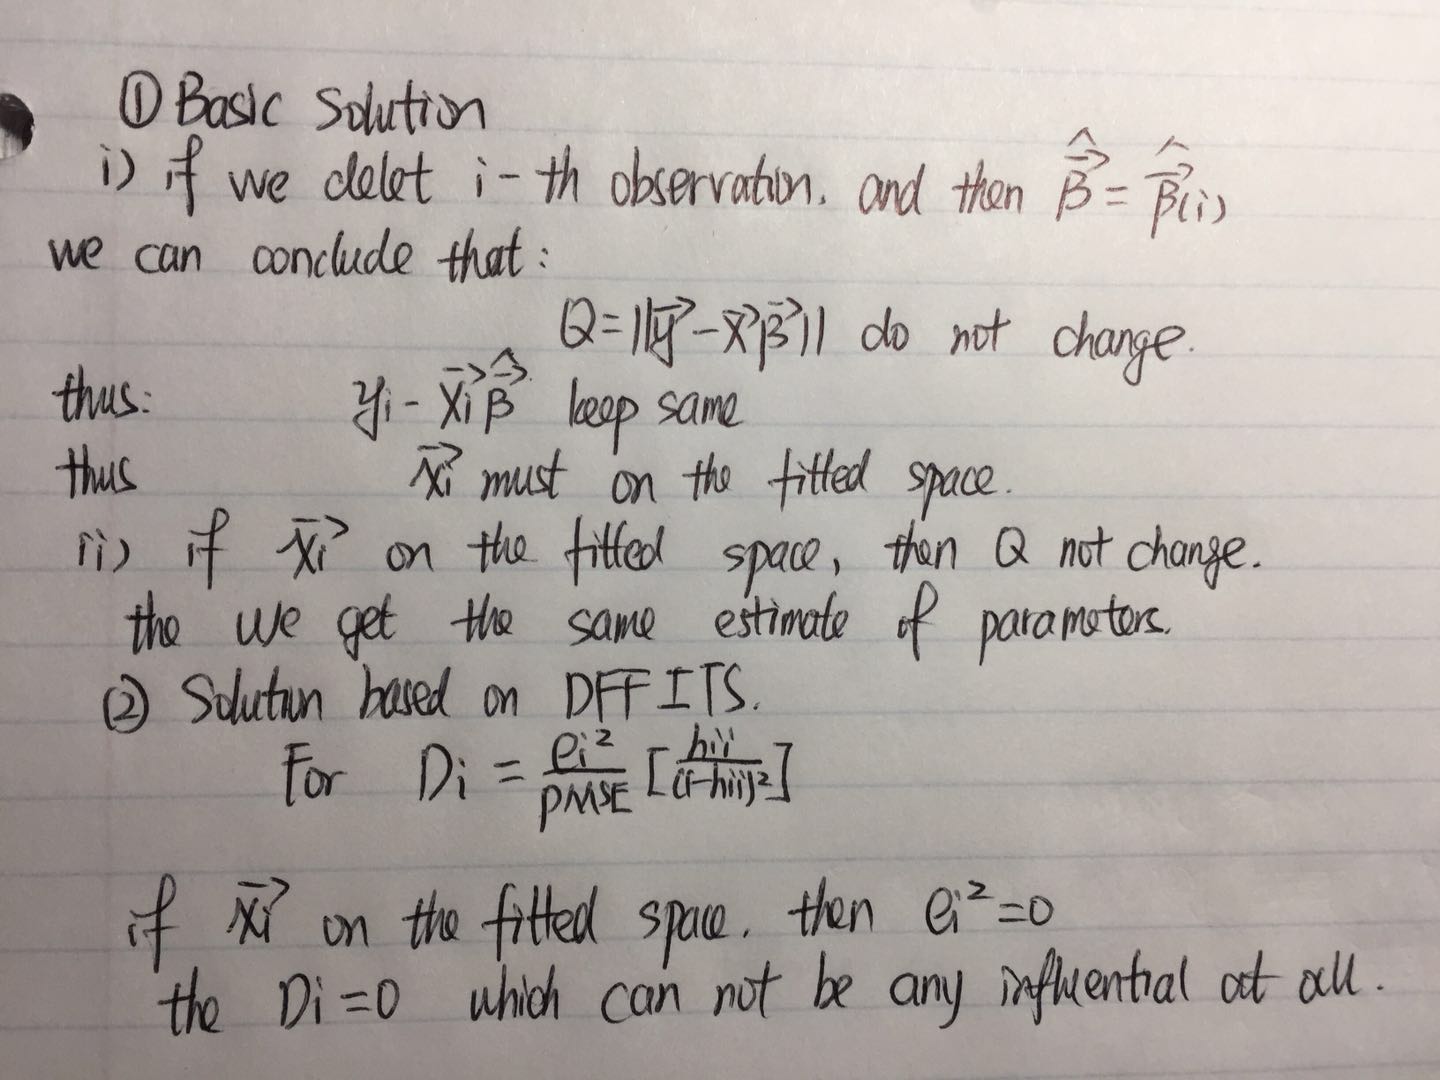 ① Basic Solution
i) if we delet i-th observation. and then $\hat{\vec{\beta}} = \hat{\vec{\beta}}_{(i)}$
we can conclude that:
$Q = ||\vec{y} - \vec{x}\vec{\beta}||$ do not change.
thus: $y_i - \vec{x_i}\hat{\vec{\beta}}$ keep same
thus $\vec{x_i}$ must on the fitted space.
ii) if $\vec{x_i}$ on the fitted space, then Q not change.
the we get the same estimate of parameters.
② Solution based on DFFITS.
For $D_i = \frac{e_i^2}{pMSE} [\frac{h_{ii}}{(1-h_{ii})^2}]$
if $\vec{x_i}$ on the fitted space. then $e_i^2 = 0$
the $D_i = 0$ which can not be any influential at all.